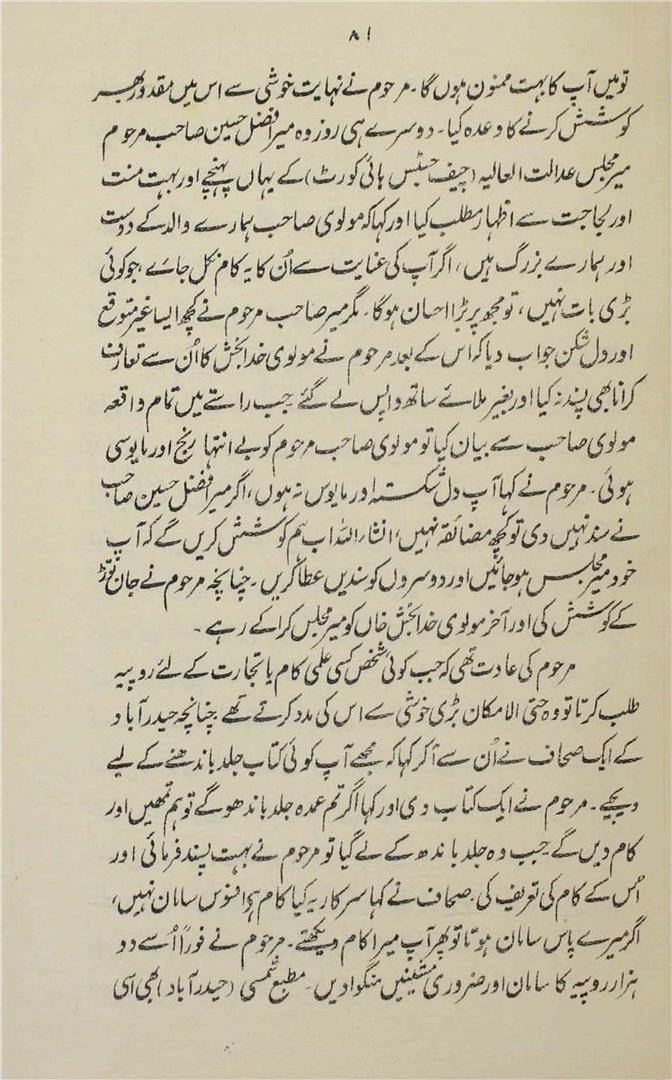 ۸۱
تو میں آپ کا بہت ممنون ہوں گا۔ مرحوم نے نہایت خوشی سے اس میں مقدور بھر
کوشش کرنے کا وعدہ کیا۔ دوسرے ہی روز وہ میر افضل حسین صاحب مرحوم
میر مجلس عدالت العالیہ (چیف جسٹس ہائی کورٹ) کے یہاں پہنچے اور بہت منت
اور لجاجت سے اظہار مطلب کیا اور کہا کہ مولوی صاحب ہمارے والد کے دوست
اور ہمارے بزرگ ہیں، اگر آپ کی عنایت سے اُن کا یہ کام نکل جائے، جو کوئی
بڑی بات نہیں، تو مجھ پر بڑا احسان ہوگا۔ مگر میر صاحب مرحوم نے کچھ ایسا غیر متوقع
اور دل شکن جواب دیا کہ اس کے بعد مرحوم نے مولوی خدا بخش کا اُن سے تعارف
کرانا بھی پسند نہ کیا اور بغیر ملائے ساتھ واپس لے گئے۔ جب راستے میں تمام واقعہ
مولوی صاحب سے بیان کیا تو مولوی صاحب مرحوم کو بے انتہا رنج اور مایوسی
ہوئی۔ مرحوم نے کہا آپ دل شکستہ اور مایوس نہ ہوں، اگر میر افضل حسین صاحب
نے سند نہیں دی تو کچھ مضائقہ نہیں، انشاء اللہ اب ہم کوشش کریں گے کہ آپ
خود میر مجلس ہو جائیں اور دوسروں کو سندیں عطا کریں۔ چنانچہ مرحوم نے جان توڑ
کے کوشش کی اور آخر مولوی خدا بخش خاں کو میر مجلس کرا کے رہے۔
مرحوم کی عادت تھی کہ جب کوئی شخص کسی علمی کام یا تجارت کے لئے روپیہ
طلب کرتا تو وہ حتی الامکان بڑی خوشی سے اس کی مدد کرتے تھے۔ چنانچہ حیدرآباد
کے ایک صحاف نے اُن سے آ کر کہا کہ مجھے آپ کوئی کتاب جلد باندھنے کے لیے
دیجیے۔ مرحوم نے ایک کتاب دی اور کہا اگر تم عمدہ جلد باندھو گے تو ہم تمھیں اور
کام دیں گے۔ جب وہ جلد باندھ کے لے گیا تو مرحوم نے بہت پسند فرمائی اور
اُس کے کام کی تعریف کی۔ صحاف نے کہا سرکار یہ کیا کام ہے، افسوس سامان نہیں،
اگر میرے پاس سامان ہوتا تو پھر آپ میرا کام دیکھتے۔ مرحوم نے فوراً اُسے دو
ہزار روپیہ کا سامان اور ضروری مشینیں منگوا دیں۔ مطبع شمسی (حیدرآباد) بھی اسی